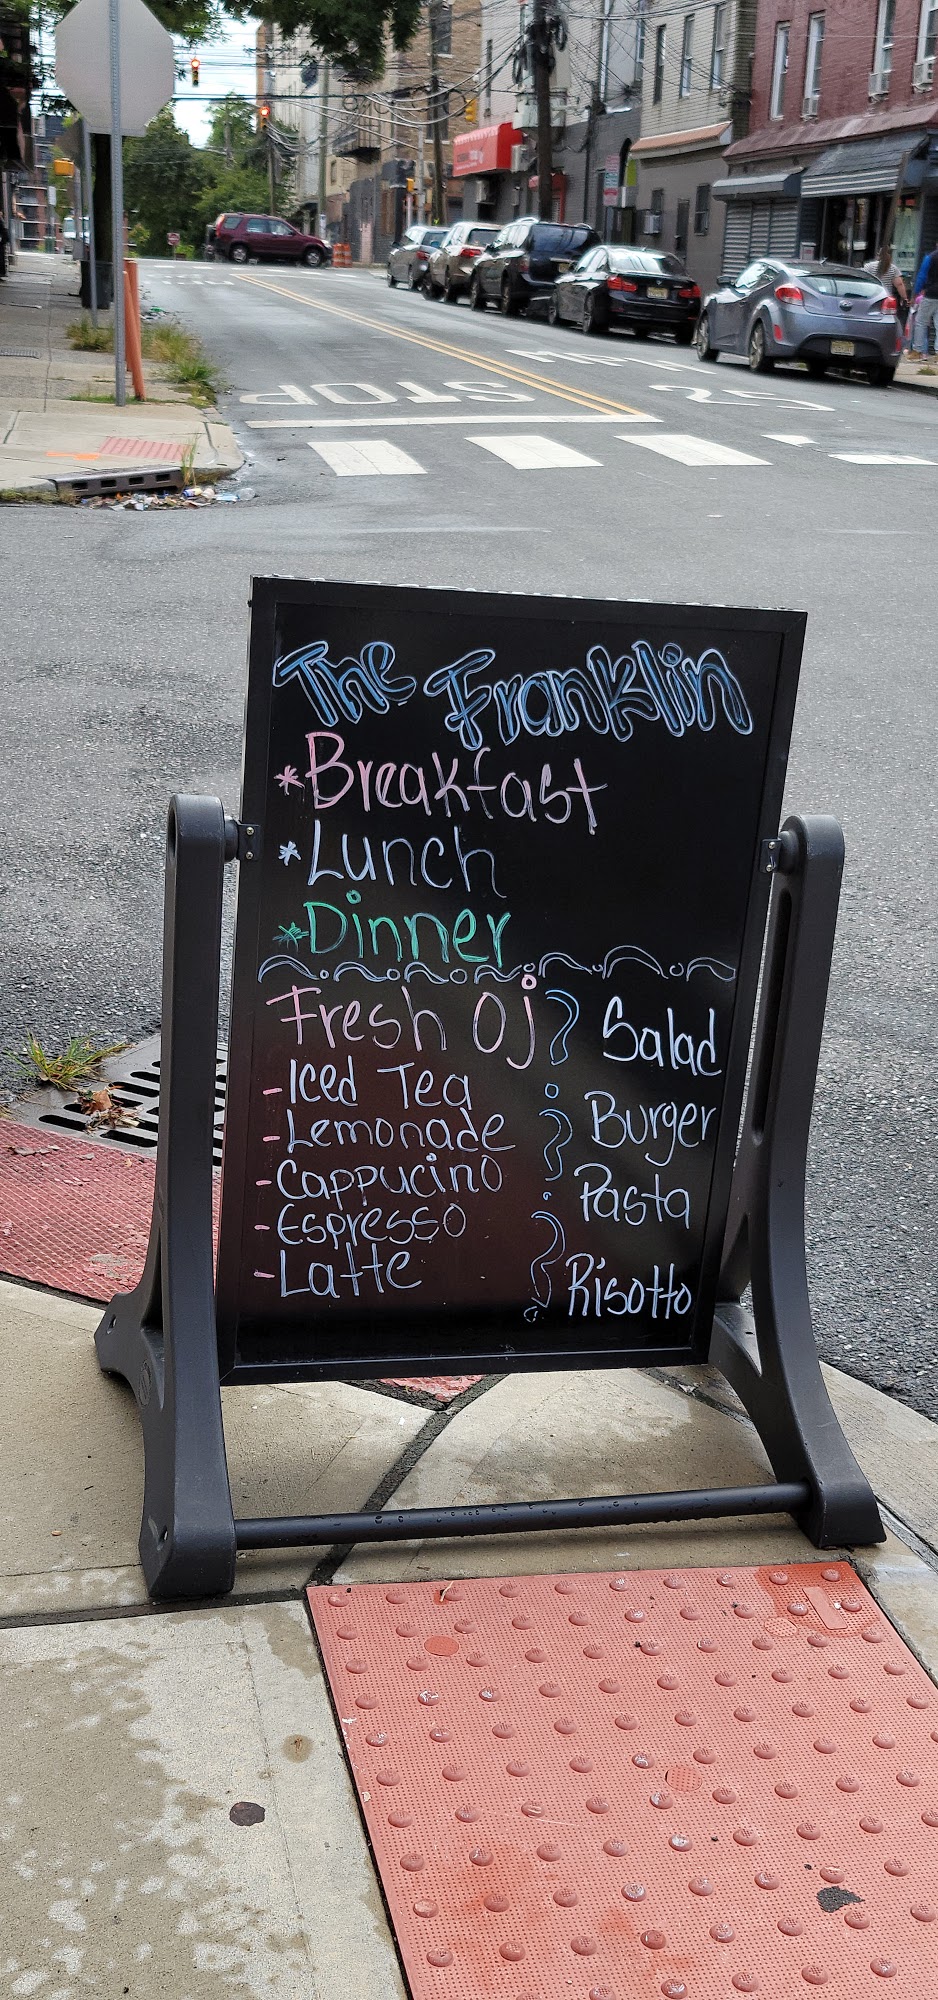 STOP
25
The Franklin
*Breakfast
*Lunch
*Dinner
Fresh Oj
-Iced Tea
-Lemonade
-Cappucino
-Espresso
-Latte
Salad
Burger
Pasta
Risotto